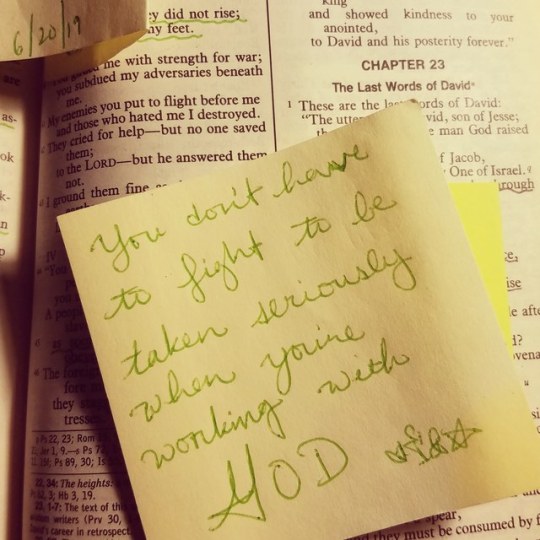 6/20/19
y did not rise;
my feet.
me with strength for war;
you subdued my adversaries beneath
me.
My enemies you put to flight before me
and those who hated me I destroyed.
They cried for help—but no one saved
them;
to the LORD—but he answered them
not.
I ground them fine
IV
You don't have
to fight to be
taken seriously
when you're
working with
GOD
and showed kindness to your
anointed,
to David and his posterity forever."
CHAPTER 23
The Last Words of David
1 These are the last words of David:
"The utter vid, son of Jesse;
e man God raised
f Jacob,
One of Israel.
rough
they
tresses
Ps 22, 23; Rom
Ps 89, 30; Is
22, 34: The heights:
3; Hb 3, 19.
23, 1-7: The text of this
writers (Prv 30,
David's career in retrospect
spear,
they must be consumed by f